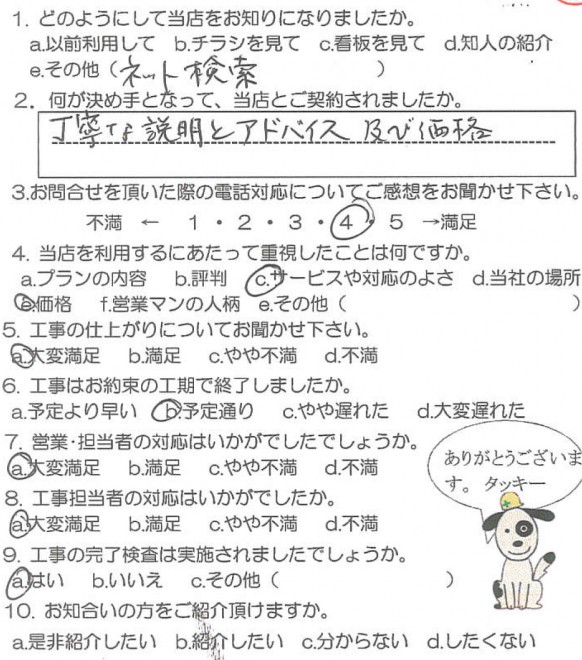 1. どのようにして当店をお知りになりましたか。
a.以前利用して b.チラシを見て c.看板を見て d.知人の紹介
e.その他（ネット検索）
2. 何が決め手となって、当店とご契約されましたか。
丁寧な説明とアドバイス 及び価格
3.お問合せを頂いた際の電話対応についてご感想をお聞かせ下さい。
不満 ← 1・2・3・4・5 →満足
4. 当店を利用するにあたって重視したことは何ですか。
a.プランの内容 b.評判 c.サービスや対応のよさ d.当社の場所
e.価格 f.営業マンの人柄 e.その他（ ）
5. 工事の仕上がりについてお聞かせ下さい。
a.大変満足 b.満足 c.やや不満 d.不満
6. 工事はお約束の工期で終了しましたか。
a.予定より早い b.予定通り c.やや遅れた d.大変遅れた
7. 営業・担当者の対応はいかがでしたでしょうか。
a.大変満足 b.満足 c.やや不満 d.不満
ありがとうございま
す。 タッキー
8. 工事担当者の対応はいかがでしたか。
a.大変満足 b.満足 c.やや不満 d.不満
9. 工事の完了検査は実施されましたでしょうか。
a.はい b.いいえ c.その他（ ）
10. お知合いの方をご紹介頂けますか。
a.是非紹介したい b.紹介したい c.分からない d.したくない